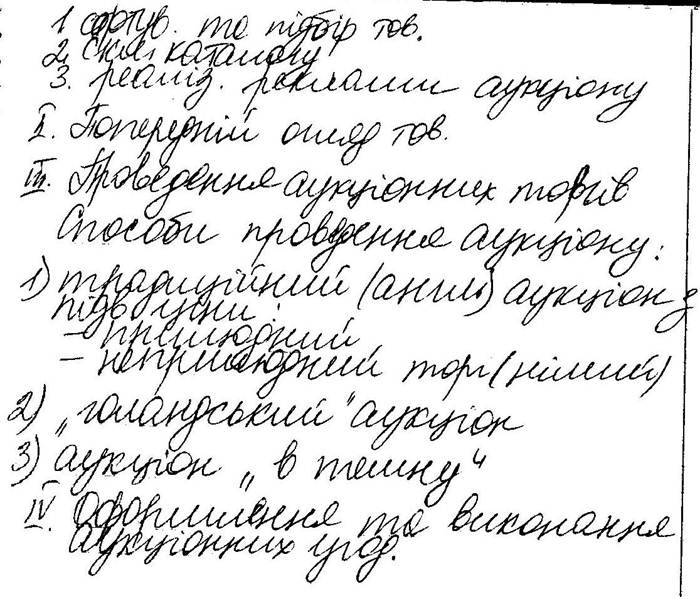 1 сортув. та підбір тов.
2. скл. каталогу
3. реаліз. реклами аукціону
II. Попередній огляд тов.
III. Проведення аукціонних торгів
Способи проведення аукціону:
1) традиційний (англ) аукціон з
підв ціни:
- прилюдний
- неприлюдний торг (німий)
2) „голандський" аукціон
3) аукціон „в темну"
IV. Оформлення та виконання
аукціонних угод.